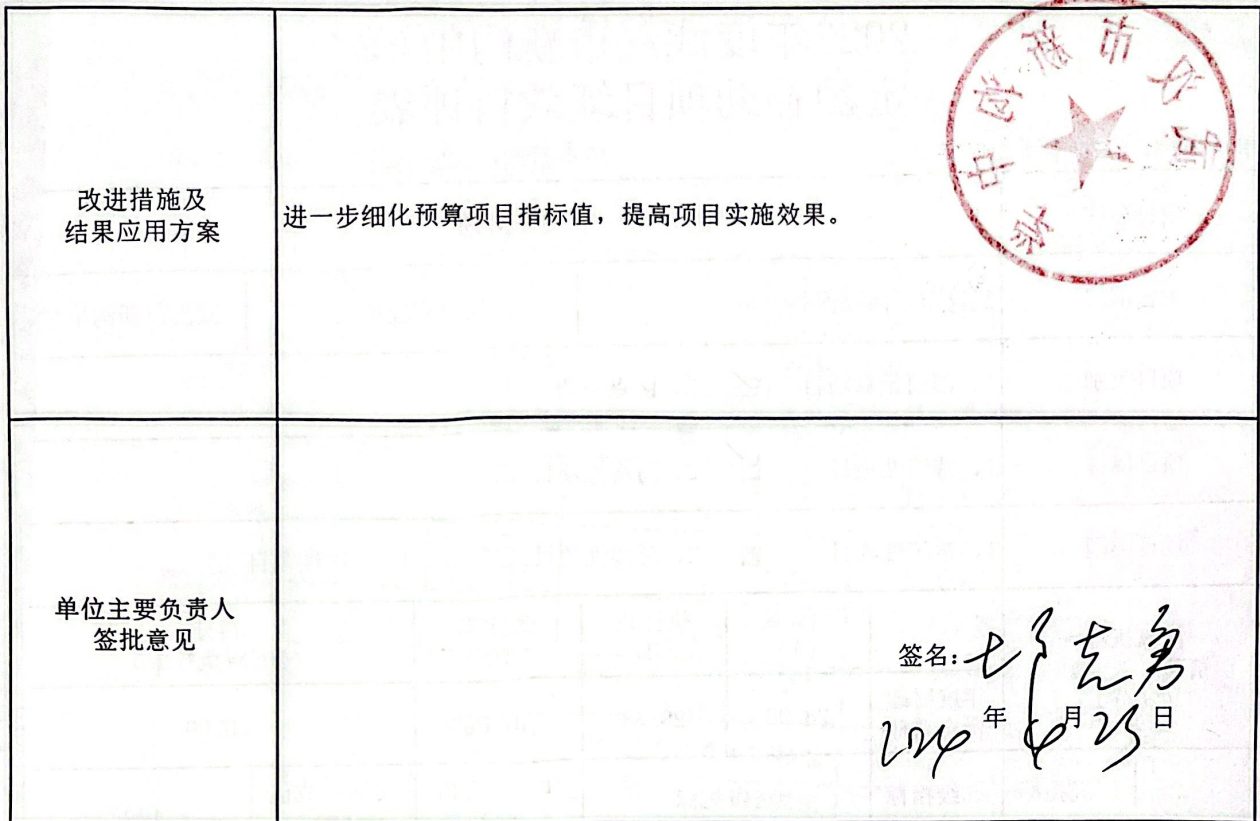 改进措施及
结果应用方案
进一步细化预算项目指标值，提高项目实施效果。
单位主要负责人
签批意见
签名：
2024 年 4 月 25 日